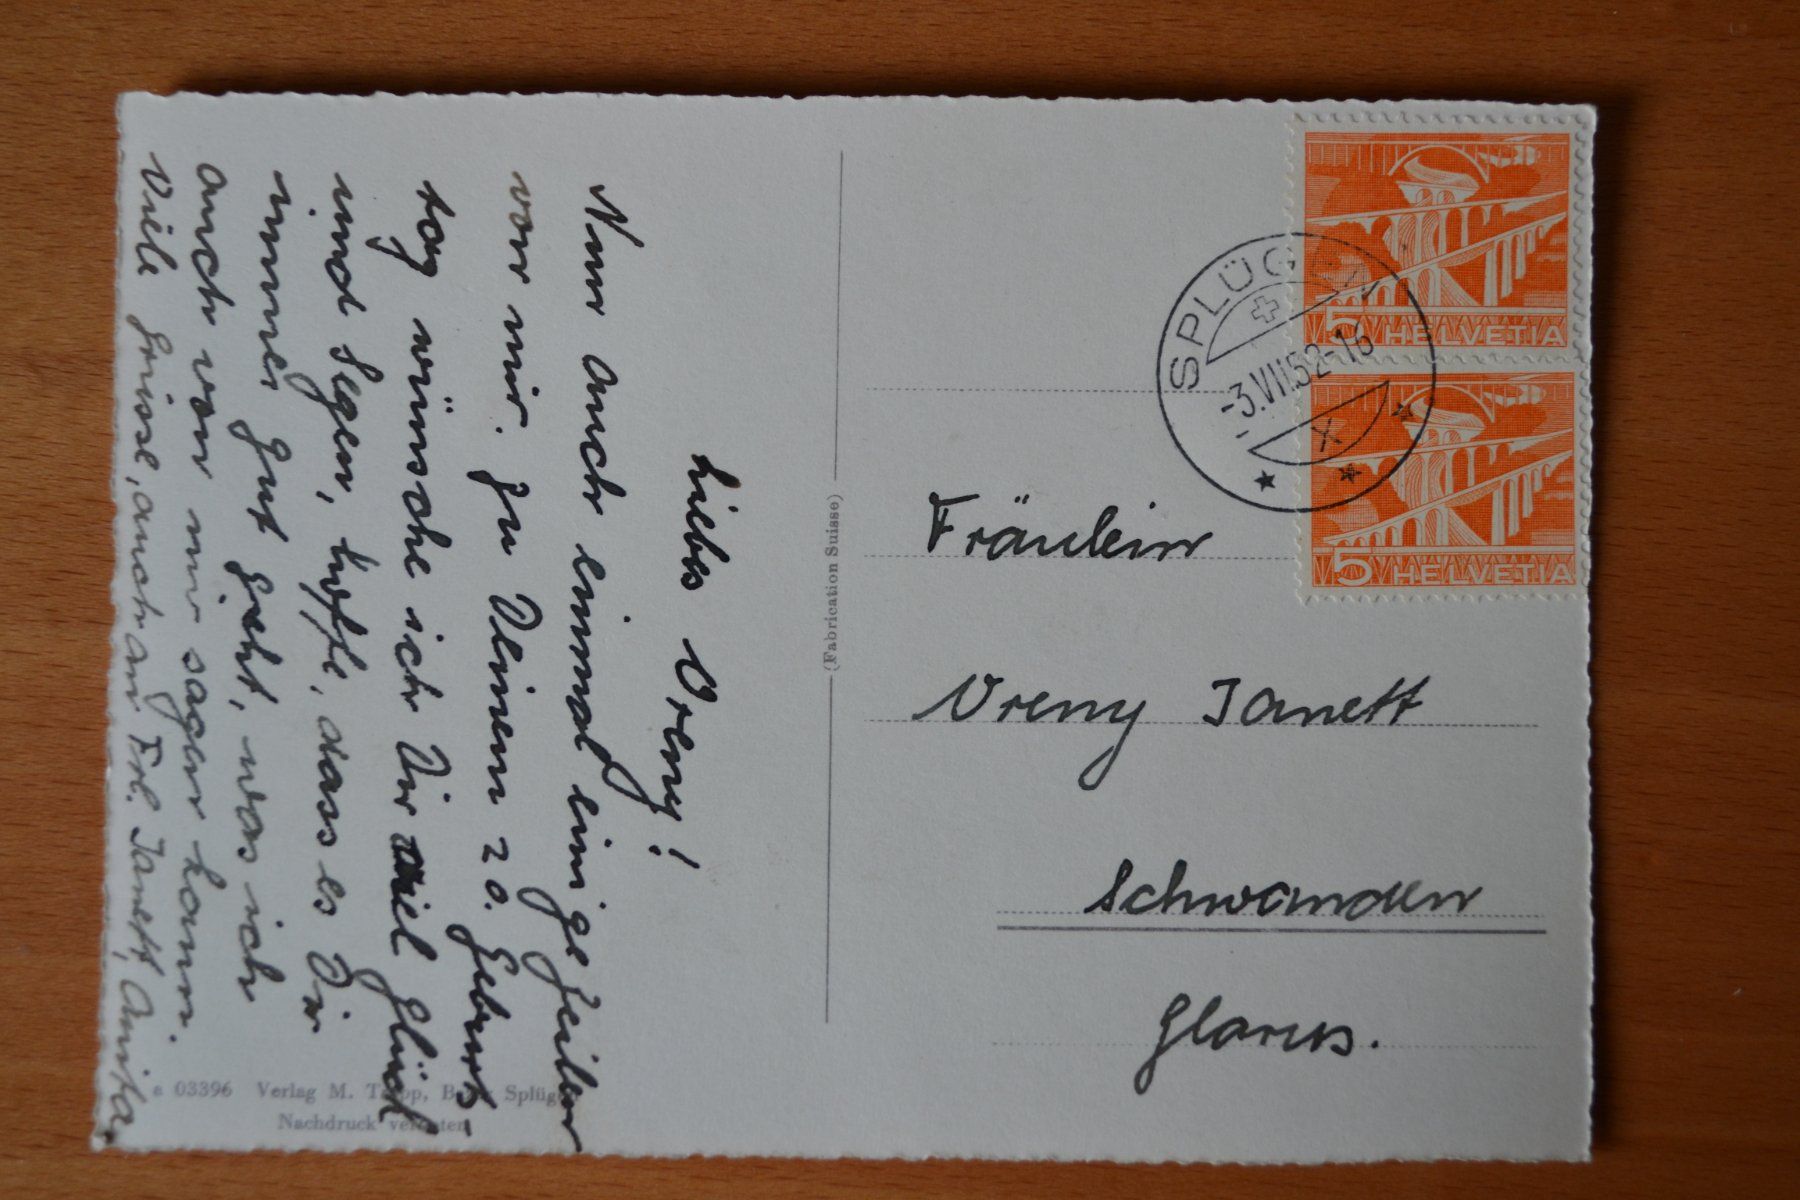 Liebes Vreny!
Nun auch einmal einige Zeilen
von mir. Zu Deinem 20. Geburts-
tag wünsche ich Dir viel Glück
und Segen, hoffe, dass es Dir
immer gut geht, was ich
auch von mir sagen kann.
Viele Grüsse, auch an Frl. Janett, Annita.
a 03396 Verlag M. Splügen
Nachdruck verboten
(Fabrication Suisse)
SPLÜGEN
-3.VII.52-16
X
5 HELVETIA
5 HELVETIA
Fräulein
Vreny Janett
Schwanden
Glarus.